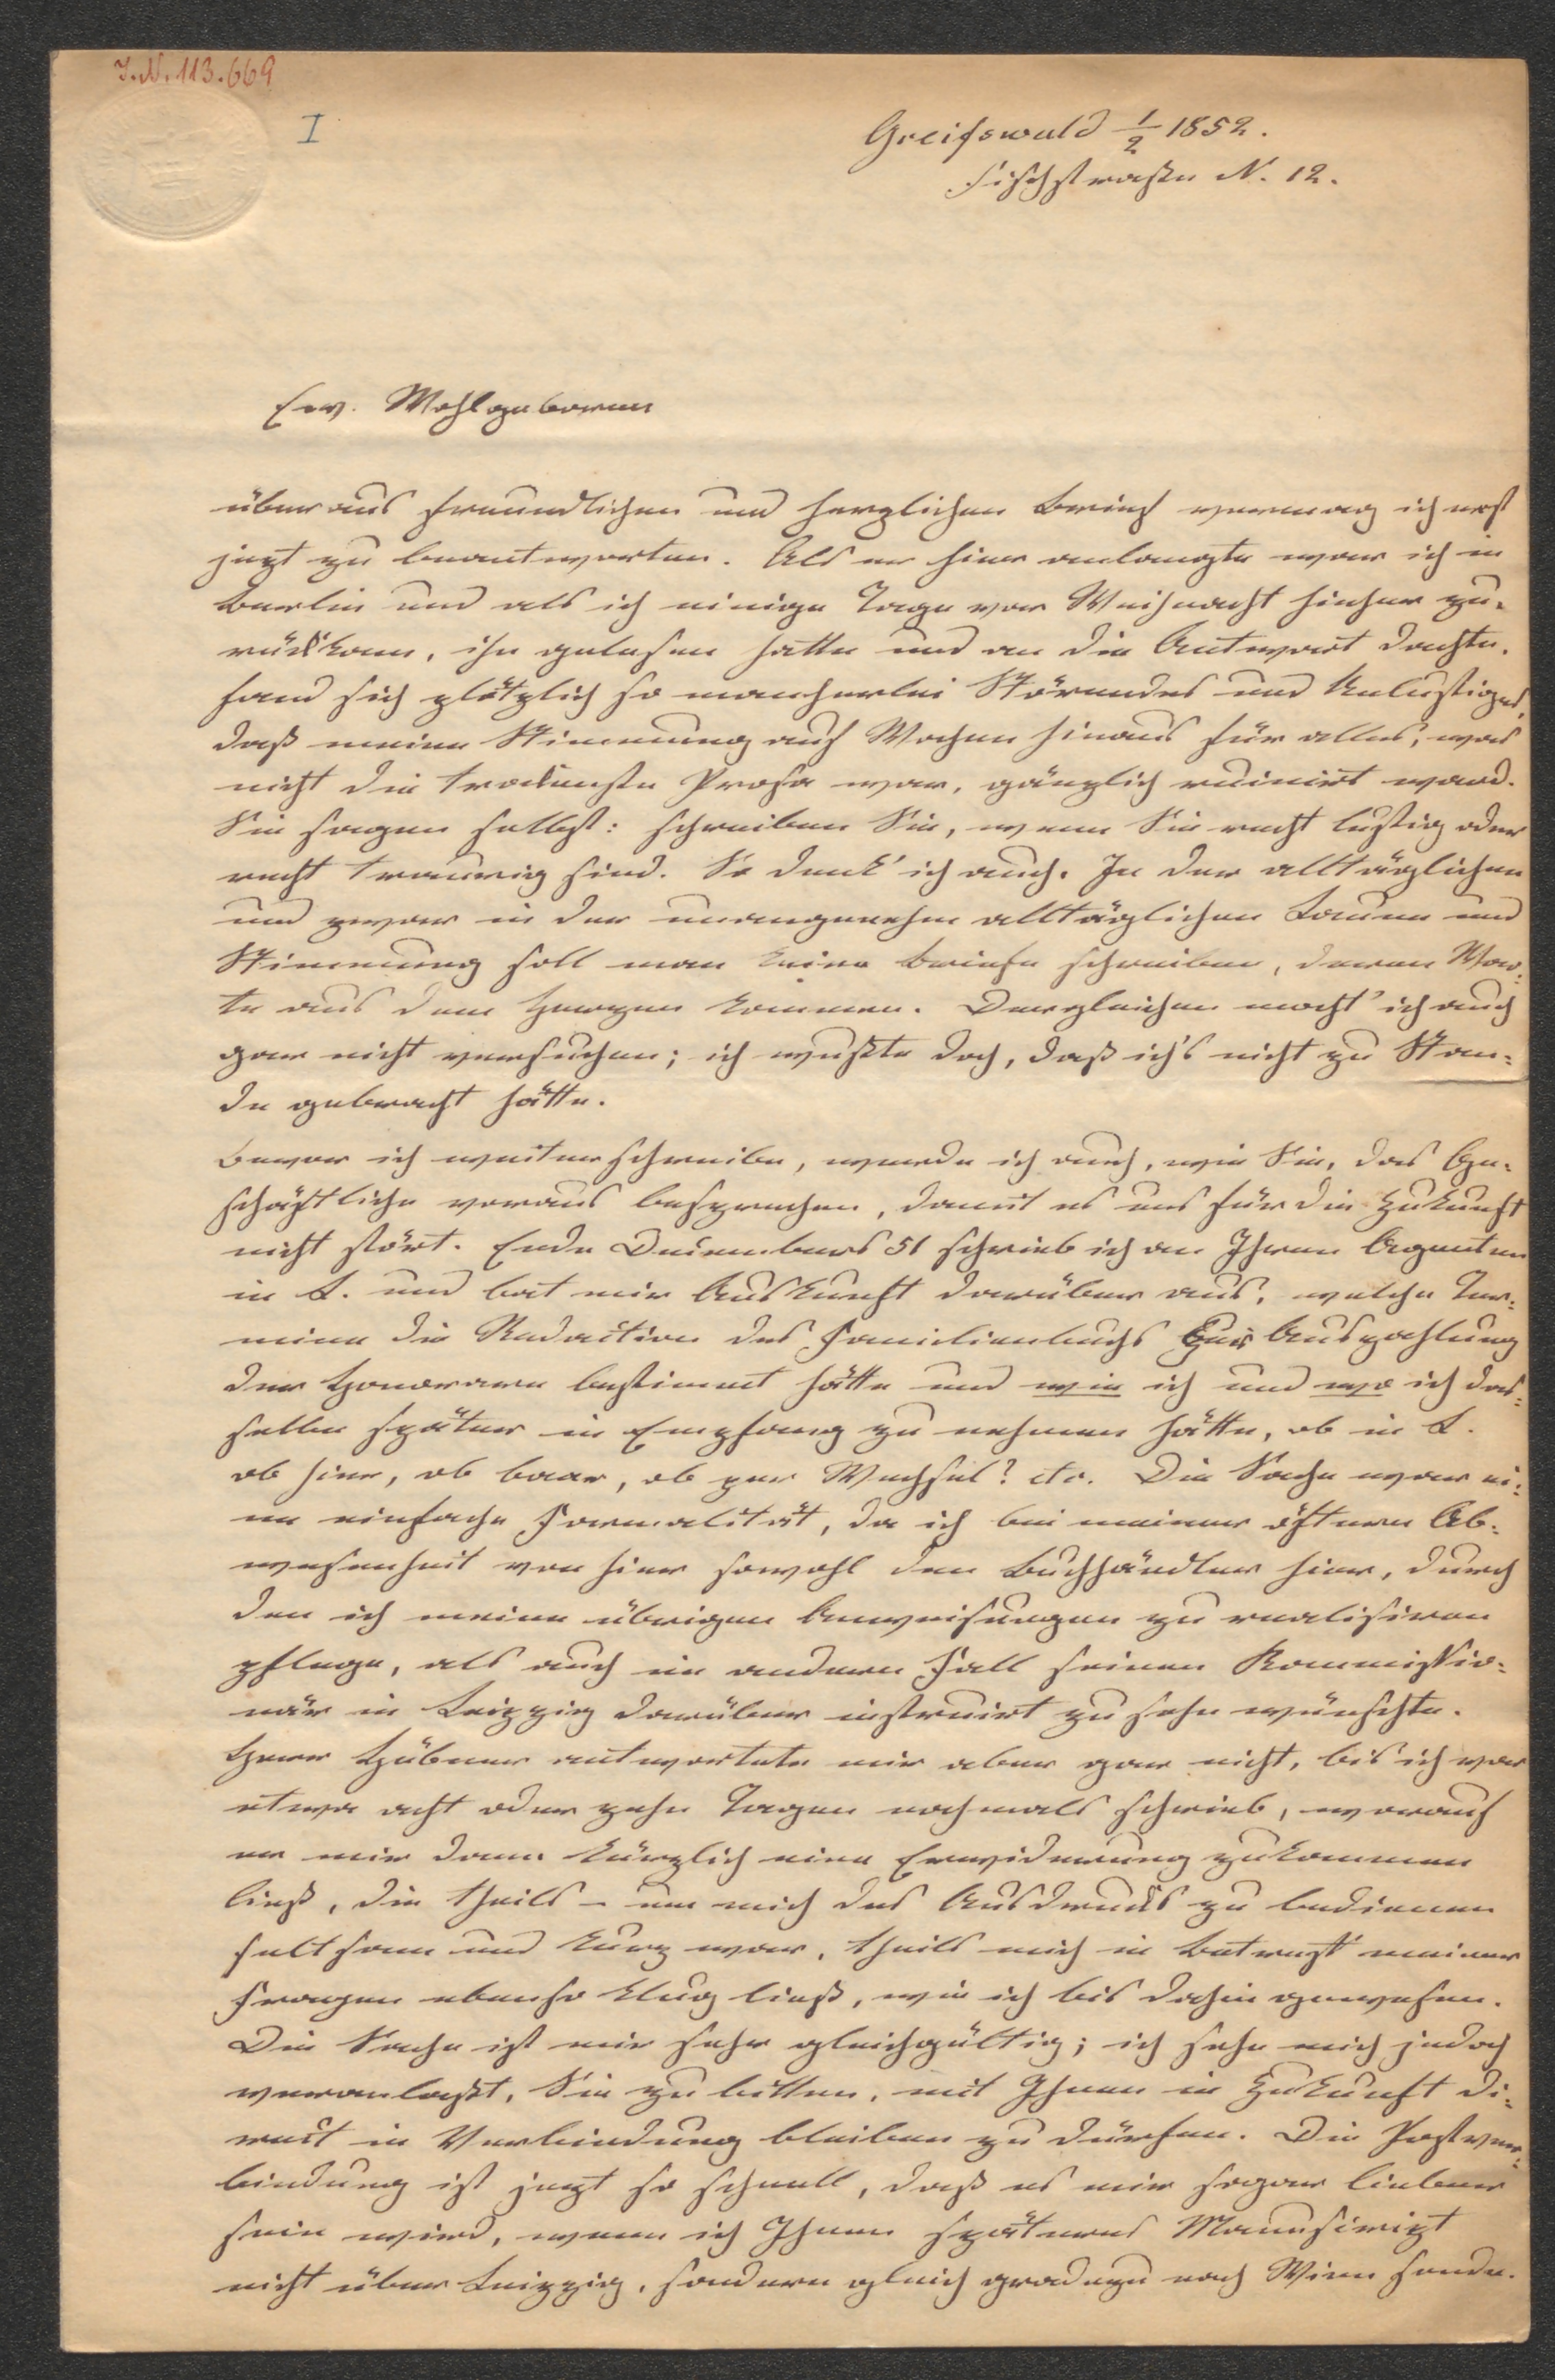 J.N. 113.669
I
Greifswald 1/2 1852.
Fischstraße N. 12.
Ew. Wohlgeboren
überaus freundlichen und herzlichen Brief vermag ich erst
jezt zu beantworten. Als er hier anlangte war ich in
Berlin und als ich einige Tage vor Weihnacht hieher zu-
rückkam, ihn gelesen hatte und an die Antwort dachte,
fand sich plötzlich so mancherlei Störendes und Unlustiges,
daß meine Stimmung auf Wochen hinaus für alles, was
nicht die trockenste Prosa war, gänzlich ruinirt ward.
Sie sagen selbst: schreiben Sie, wenn Sie recht lustig oder
recht traurig sind. So denk' ich auch. In der alltäglichen
und zwar in der unangenehm alltäglichen Laune und
Stimmung soll man keine Briefe schreiben, deren Wor-
te aus dem Herzen kommen. Dergleichen mocht' ich auch
gar nicht versuchen; ich wußte doch, daß ich's nicht zu Stan-
de gebracht hätte.
Bevor ich weiter schreibe, werde ich auch, wie Sie, das Ge-
schäftliche voraus besprechen, damit es uns für die Zukunft
nicht stört. Ende Decembers 51 schrieb ich an Ihren Agenten
in L. und bat mir Auskunft darüber aus, welche Ter-
mine die Redaction des Familienbuchs zur Auszahlung
der Honorare bestimmt hätte und wie ich und wo ich das-
selbe später in Empfang zu nehmen hätte, ob in L.
ob hier, ob baar, ob per Wechsel? etc. Die Sache war ei-
ne einfache Formalität, da ich bei meiner öftern Ab-
wesenheit von hier sowohl den Buchhändler hier, durch
den ich meine übrigen Anweisungen zu realisiren
pflege, als auch im andern Fall seinen Kommissio-
när in Leipzig darüber instruirt zu sehn wünschte.
Herr Hübner antwortete mir aber gar nicht, bis ich vor
etwa acht oder zehn Tagen nochmals schrieb, worauf
er mir dann kürzlich eine Erwiderung zukommen
ließ, die theils – um mich des Ausdrucks zu bedienen
seltsam und kurz war, theils mich in Betreff meiner
Fragen ebenso klug ließ, wie ich bis dahin gewesen.
Die Sache ist mir sehr gleichgültig; ich sehe mich jedoch
veranlaßt, Sie zu bitten, mit Ihnen in Zukunft di-
rect in Verbindung bleiben zu dürfen. Die Postver-
bindung ist jezt so schnell, daß es mir sogar lieber
sein wird, wenn ich Ihnen späteres Manuscript
nicht über Leipzig, sondern gleich gradezu nach Wien sende.